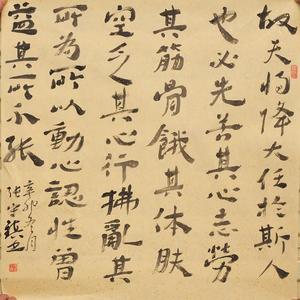 故天将降大任於斯人
也必先苦其心志勞
其筋骨餓其体肤
空乏其心行拂亂其
所為所以動心認性曾
益其所不能
辛卯冬月